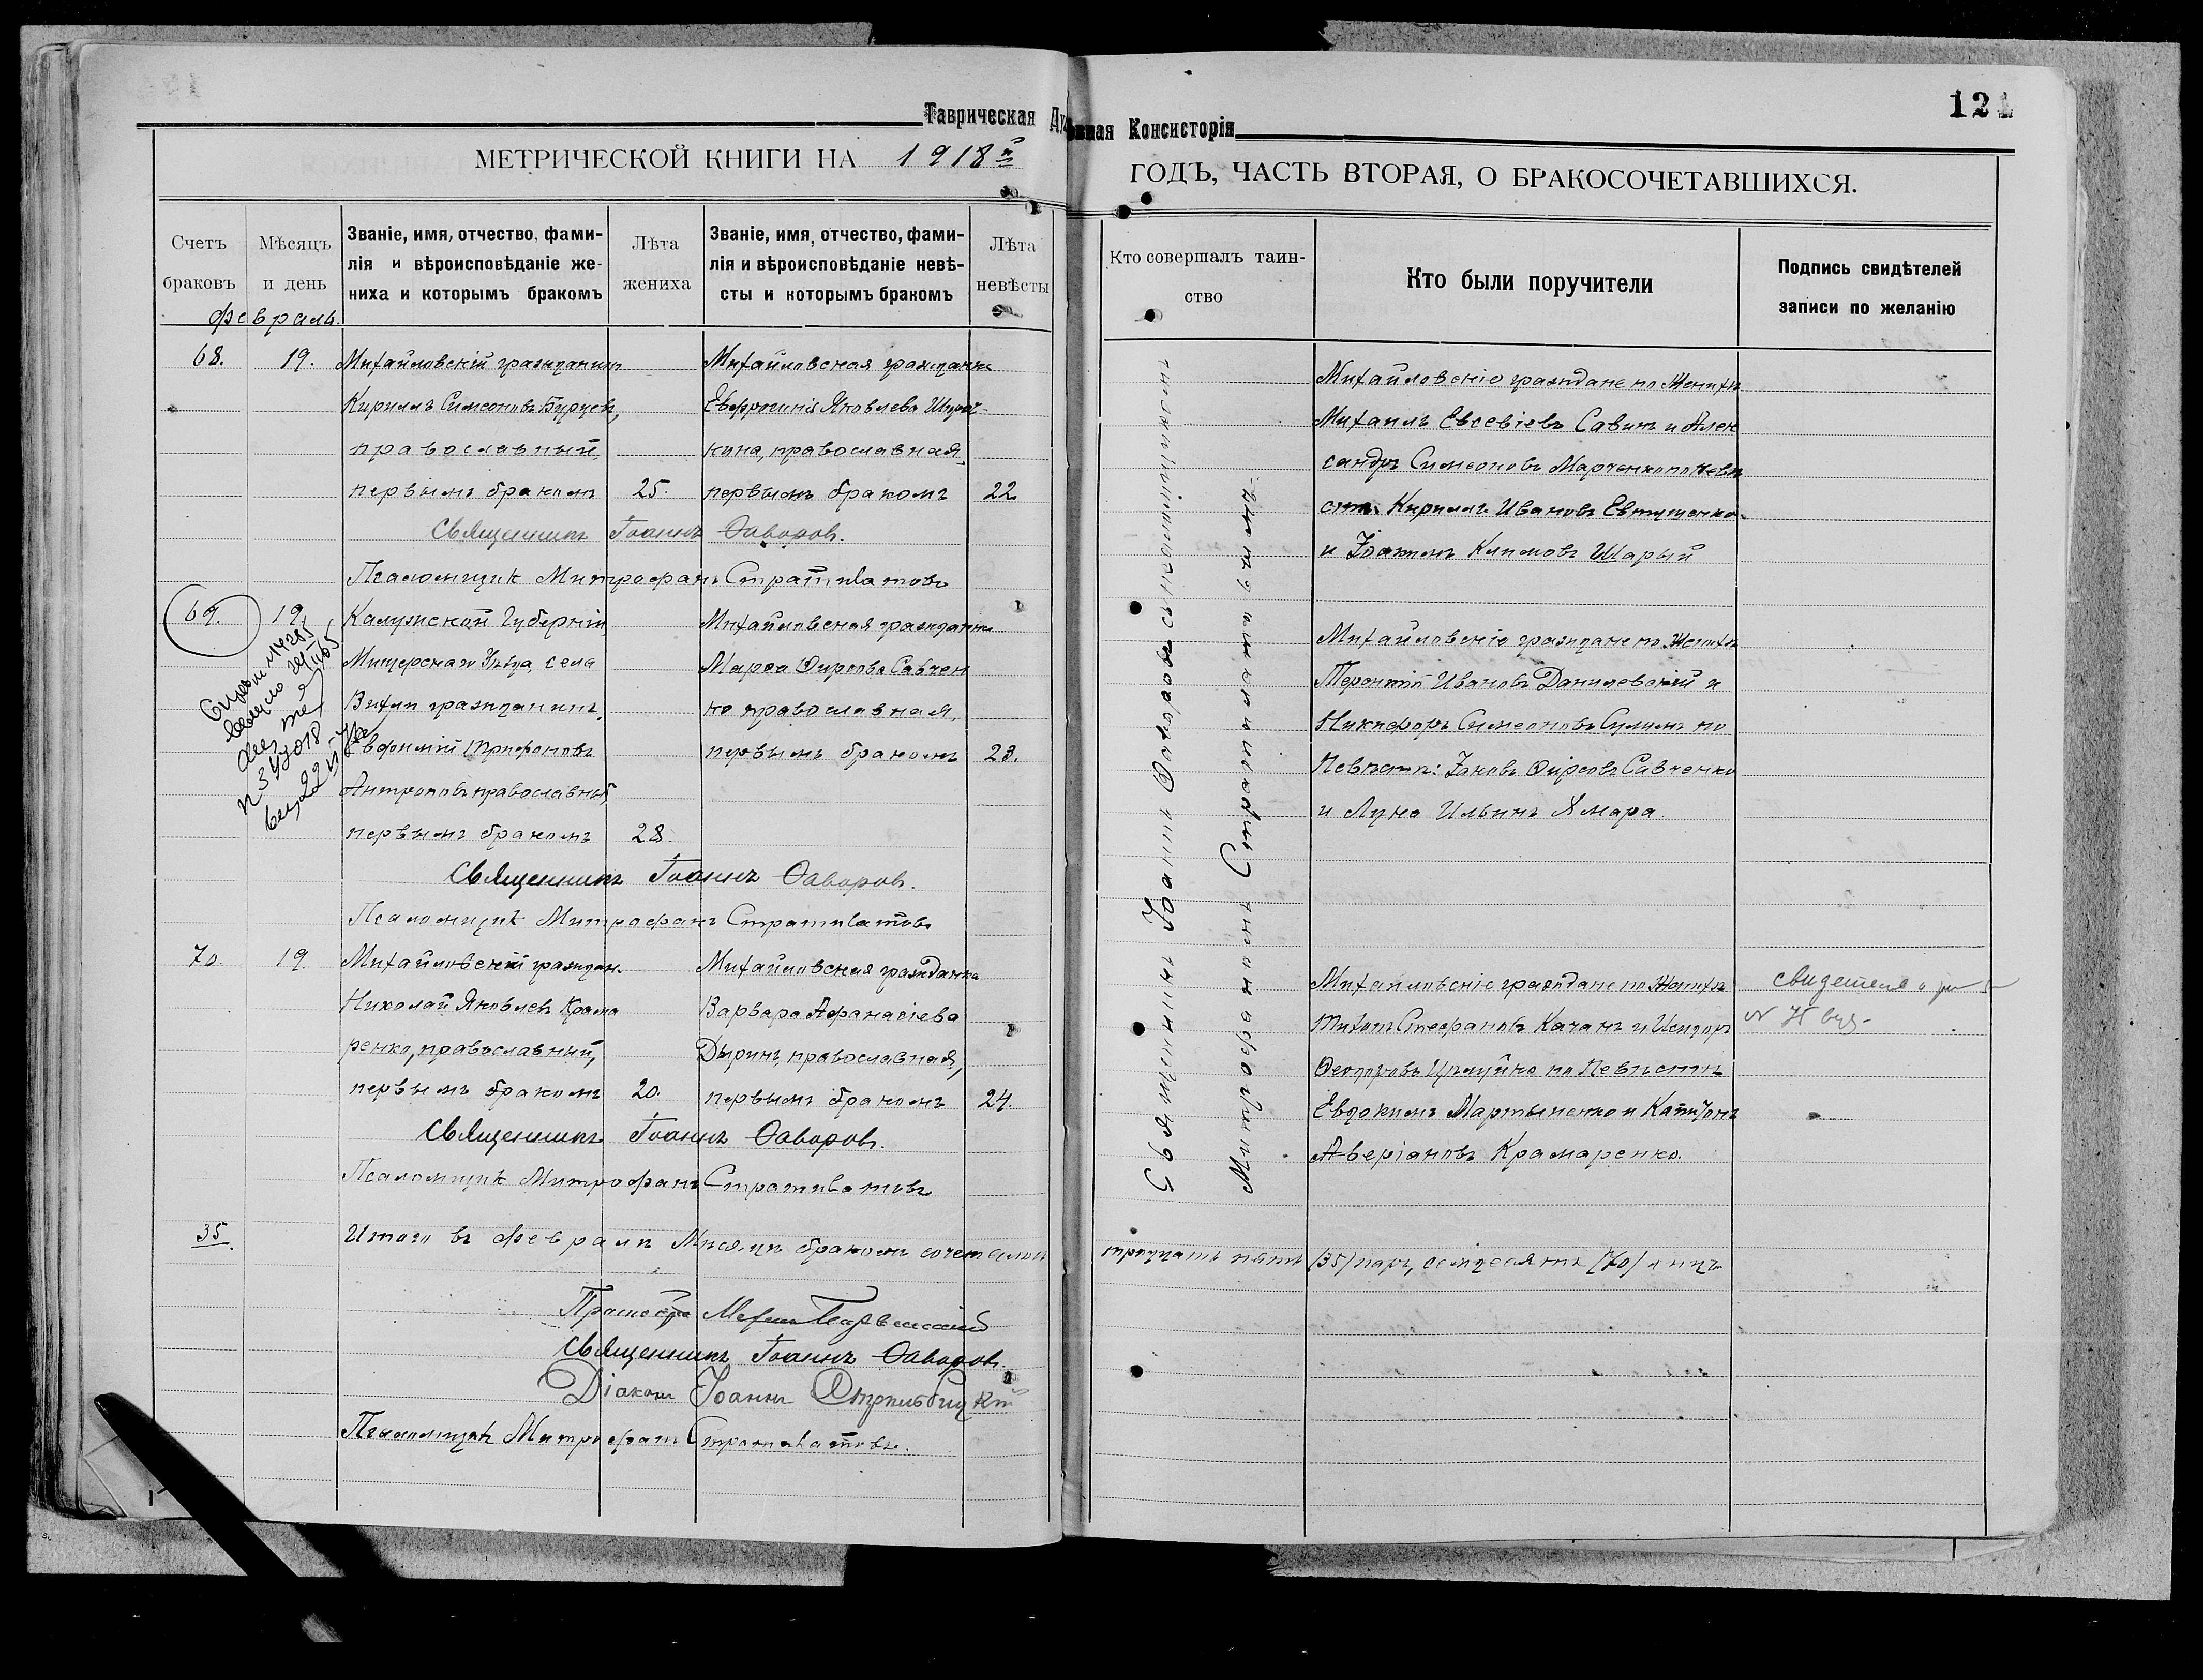 121
Таврическая Духовная Консисторія
МЕТРИЧЕСКОЙ КНИГИ НА 1918й ГОДЪ, ЧАСТЬ ВТОРАЯ, О БРАКОСОЧЕТАВШИХСЯ.
Счетъ браковъ
Мѣсяцъ и день
Званіе, имя, отчество, фами-
лія и вѣроисповѣданіе же-
ниха и которымъ бракомъ
Лѣта жениха
Званіе, имя, отчество, фами-
лія и вѣроисповѣданіе невѣ-
сты и которымъ бракомъ
Лѣта невѣсты
Кто совершалъ таин-
ство
Кто были поручители
Подпись свидѣтелей
записи по желанію
февраль.
68. 19.
Михайловскій гражданинъ
Кириллъ Симеоновъ Бурцевъ,
православный,
первымъ бракомъ 25.
Михайловская гражданка
Евфросинія Яковлева
кина, православная,
первымъ бракомъ 22
Михайловскіе граждане по Женихѣ
Михаилъ Евсевіевъ Савинъ и Алек
сандръ Симеоновъ Марченко по Невѣ
стѣ Кириллъ Ивановъ Евтушенко
и Іоакимъ Климовъ Шарый
Священникъ Іоаннъ Фаворов.
Псаломщикъ Митрофанъ Стратилатовъ
69. 19.
Калужской Губерніи,
Уѣзда, села
гражданинъ,
Евфимій Трифоновъ
Антроповъ православный,
первымъ бракомъ 28.
Михайловская гражданка
Марфа Фирсова Савчен
ко православная,
первымъ бракомъ 23.
Михайловскіе граждане по Женихѣ
Терентій Ивановъ Данилевскій и
Никифоръ Симеоновъ Сулимъ по
Невѣстѣ: Іаковъ Фирсовъ Савченко
и Лука Ильинъ Хмара.
Священникъ Іоаннъ Фаворов.
Псаломщикъ Митрофанъ Стратилатовъ
70. 19.
Михайловскій граждан.
Николай Яковлев Крама
ренко, православный,
первымъ бракомъ 20.
Михайловская гражданка
Варвара Афанасіева
Дыринъ, православная,
первымъ бракомъ 24.
Михайловскіе граждане по Женихѣ
Титъ Стефановъ Качанъ и Исидоръ
Феодоровъ по Невѣстѣ
Евдокимъ Мартыненко и Капитонъ
Аверіановъ Крамаренко.
Священникъ Іоаннъ Фаворов.
Псаломщикъ Митрофанъ Стратилатовъ
Священникъ Іоаннъ Фаворовъ съ псаломщикомъ
Митрофаномъ Стратилатовымъ.
35. Итого въ Февралѣ Мѣсяцѣ бракомъ сочеталось тридцать пять (35) паръ, семьдесятъ (70) лицъ
Священникъ Іоаннъ Фаворов.
Діаконъ Іоаннъ
Псаломщикъ Митрофанъ Стратилатовъ.